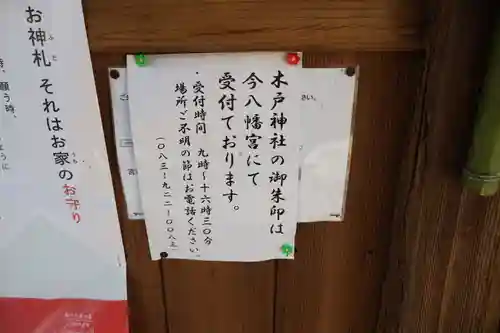 木戸神社の御朱印は
今八幡宮にて
受付ております。
・受付時間 九時〜十六時三〇分
場所ご不明の節はお電話ください。
(〇八三ー九二二ー〇〇八三)
お神札 それはお家のお守り
ふだ
うち
願う時、